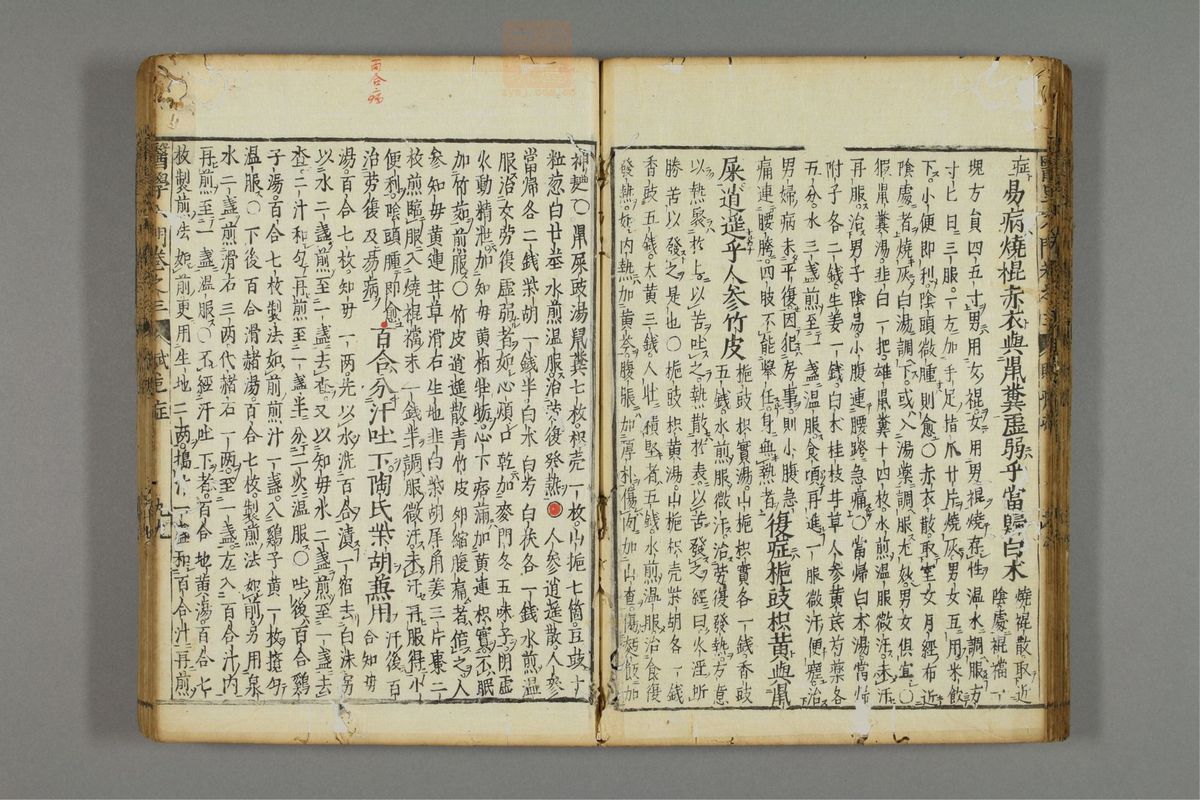 症易病燒棍赤衣與鼠糞虛弱乎當歸白朮
燒裩散取近
陰處裩襠一
塊方員四五寸男用女裩女用男裩燒存性温水調服方
寸匕日三服一方加手足指爪廿片燒灰男女五用米飲
下小便即利陰頭微腫則愈〇赤衣散取室女月經布近
陰處者燒灰白湯調下或入湯藥調服尤妙男女俱宜〇
猳鼠糞湯韭白一把雄鼠糞十四枚水煎温服微汗未汗
再服治男子陰易小腹連腰膯急痛〇當歸白朮湯當歸
附子各二錢生姜一錢白朮桂枝甘草人參黄芪芍藥各
五分水三盞煎至一盞温服食頃再進一服微汗便瘥治
男婦病未平復因犯房事則小腹急
痛連腰胯四肢不能舉任身無熱者
復症梔豉枳黄與鼠
屎逍遥乎人參竹皮
梔豉枳實湯山梔枳實各一錢香豉
五錢水煎服微汗治勞復發熱方意
以熱聚於上以苦吐之熱散於表以苦發之經曰火淫所
勝苦以發之是也〇梔豉枳黄湯山梔枳壳柴胡各一錢
香豉五錢大黄三錢人壯積堅者五錢水煎温服治食復
發熱如内熱加黄芩腹脹加厚朴傷肉加山查傷麪飯加
神麯〇鼠屎豉湯鼠糞七枚枳壳一枚山梔七箇豆豉十
粒葱白廿莖水煎温服治勞後發熱
人參逍遥散人參
當歸各二錢柴胡一錢半白朮白芍白茯各一錢水煎温
服治女勞復虛弱者如心煩口乾加麥門冬五味子陰虛
火動精泄加知母黄栢牡蛎心下痞滿加黄連枳實不眠
加竹茹煎服〇竹皮逍遥散青竹皮卵縮腹痛者倍之人
參知母黄連甘草滑石生地韭白柴胡犀角姜三片棗二
枚煎臨服入燒裩襠末一錢半調服微汗未汗再服得小
便利陰頭腫即愈
治勞復及易病
百合分汗吐下陶氏柴胡蕪用
汗後百
合知母
湯百合七枚知母一兩先以水洗百合漬一宿去白沫另
以水二盞煎至一盞去査又以知母水二盞煎至一盞去
査二汁和勻再煎至一盞半分二次温服〇吐後百合鷄
子湯百合七枚製法如前煎汁一盞入鷄子黄一枚攪勻
温服〇下後百合滑赭湯百合七枚製煎法如前另用泉
水二盞煎滑石三兩代赭石一兩至一盞去入百合汁内
再煎至一盞温服〇不經汗吐下者百合地黄湯百合七
枚製煎法如前更用生地二兩搗汁一盞和百合汁再煎
百合病